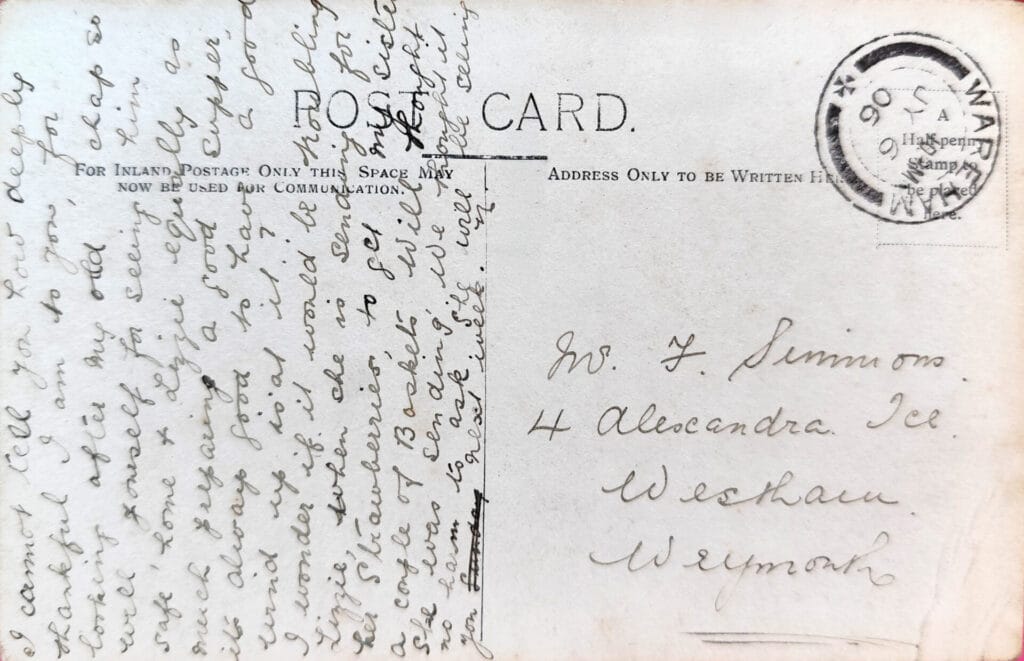 POST CARD.
FOR INLAND POSTAGE ONLY THIS SPACE MAY
NOW BE USED FOR COMMUNICATION.
ADDRESS ONLY TO BE WRITTEN HERE.
A
Halfpenny
Stamp to
be placed
here.
WAREHAM
06
I cannot tell you how deeply
thankful I am to you, for
looking after my old chap so
well for seeing him
safe, home & Lizzie equally as
much preparing a good supper
its always good to have a good
wind up is'nt it?
I wonder if it would be troubling
Lizzie, when she is sending for
her Strawberries, to get my sister
a couple of Baskets Will thought
She was sending, we thought it
no harm to ask She will be seeing
you Sunday next week.
Mr. F. Simmons.
4 Alexandra. Tce.
Westham
Weymouth